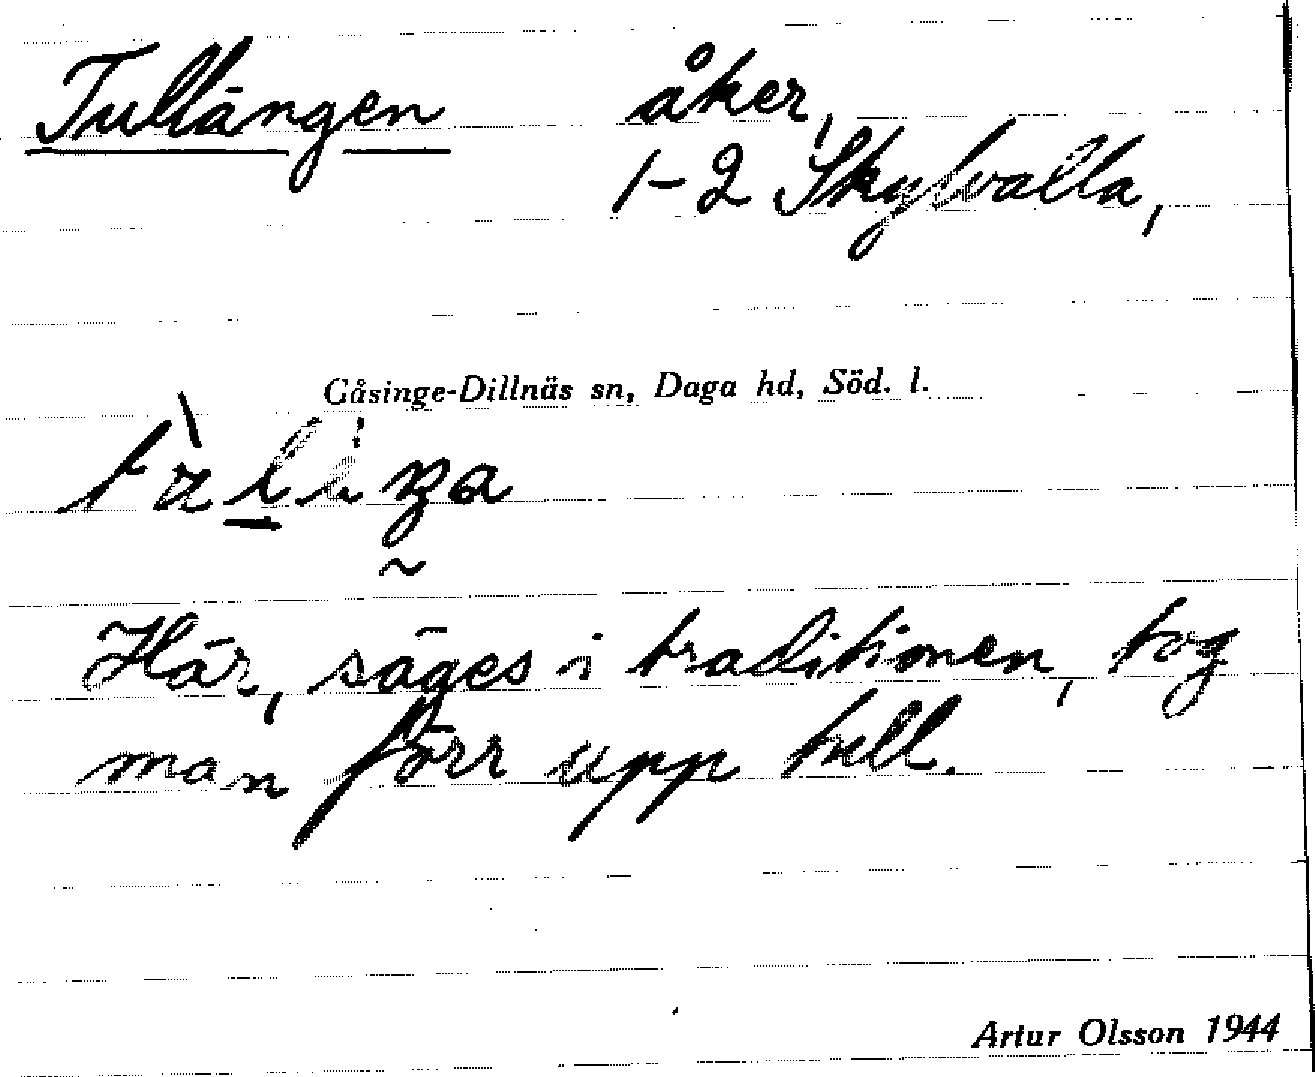 Tullängen åker,
1-2 Skylvalla,
Gåsinge-Dillnäs sn, Daga hd, Söd. l.
Här, säges i traditionen, tog
man förr upp tull.
Artur Olsson 1944